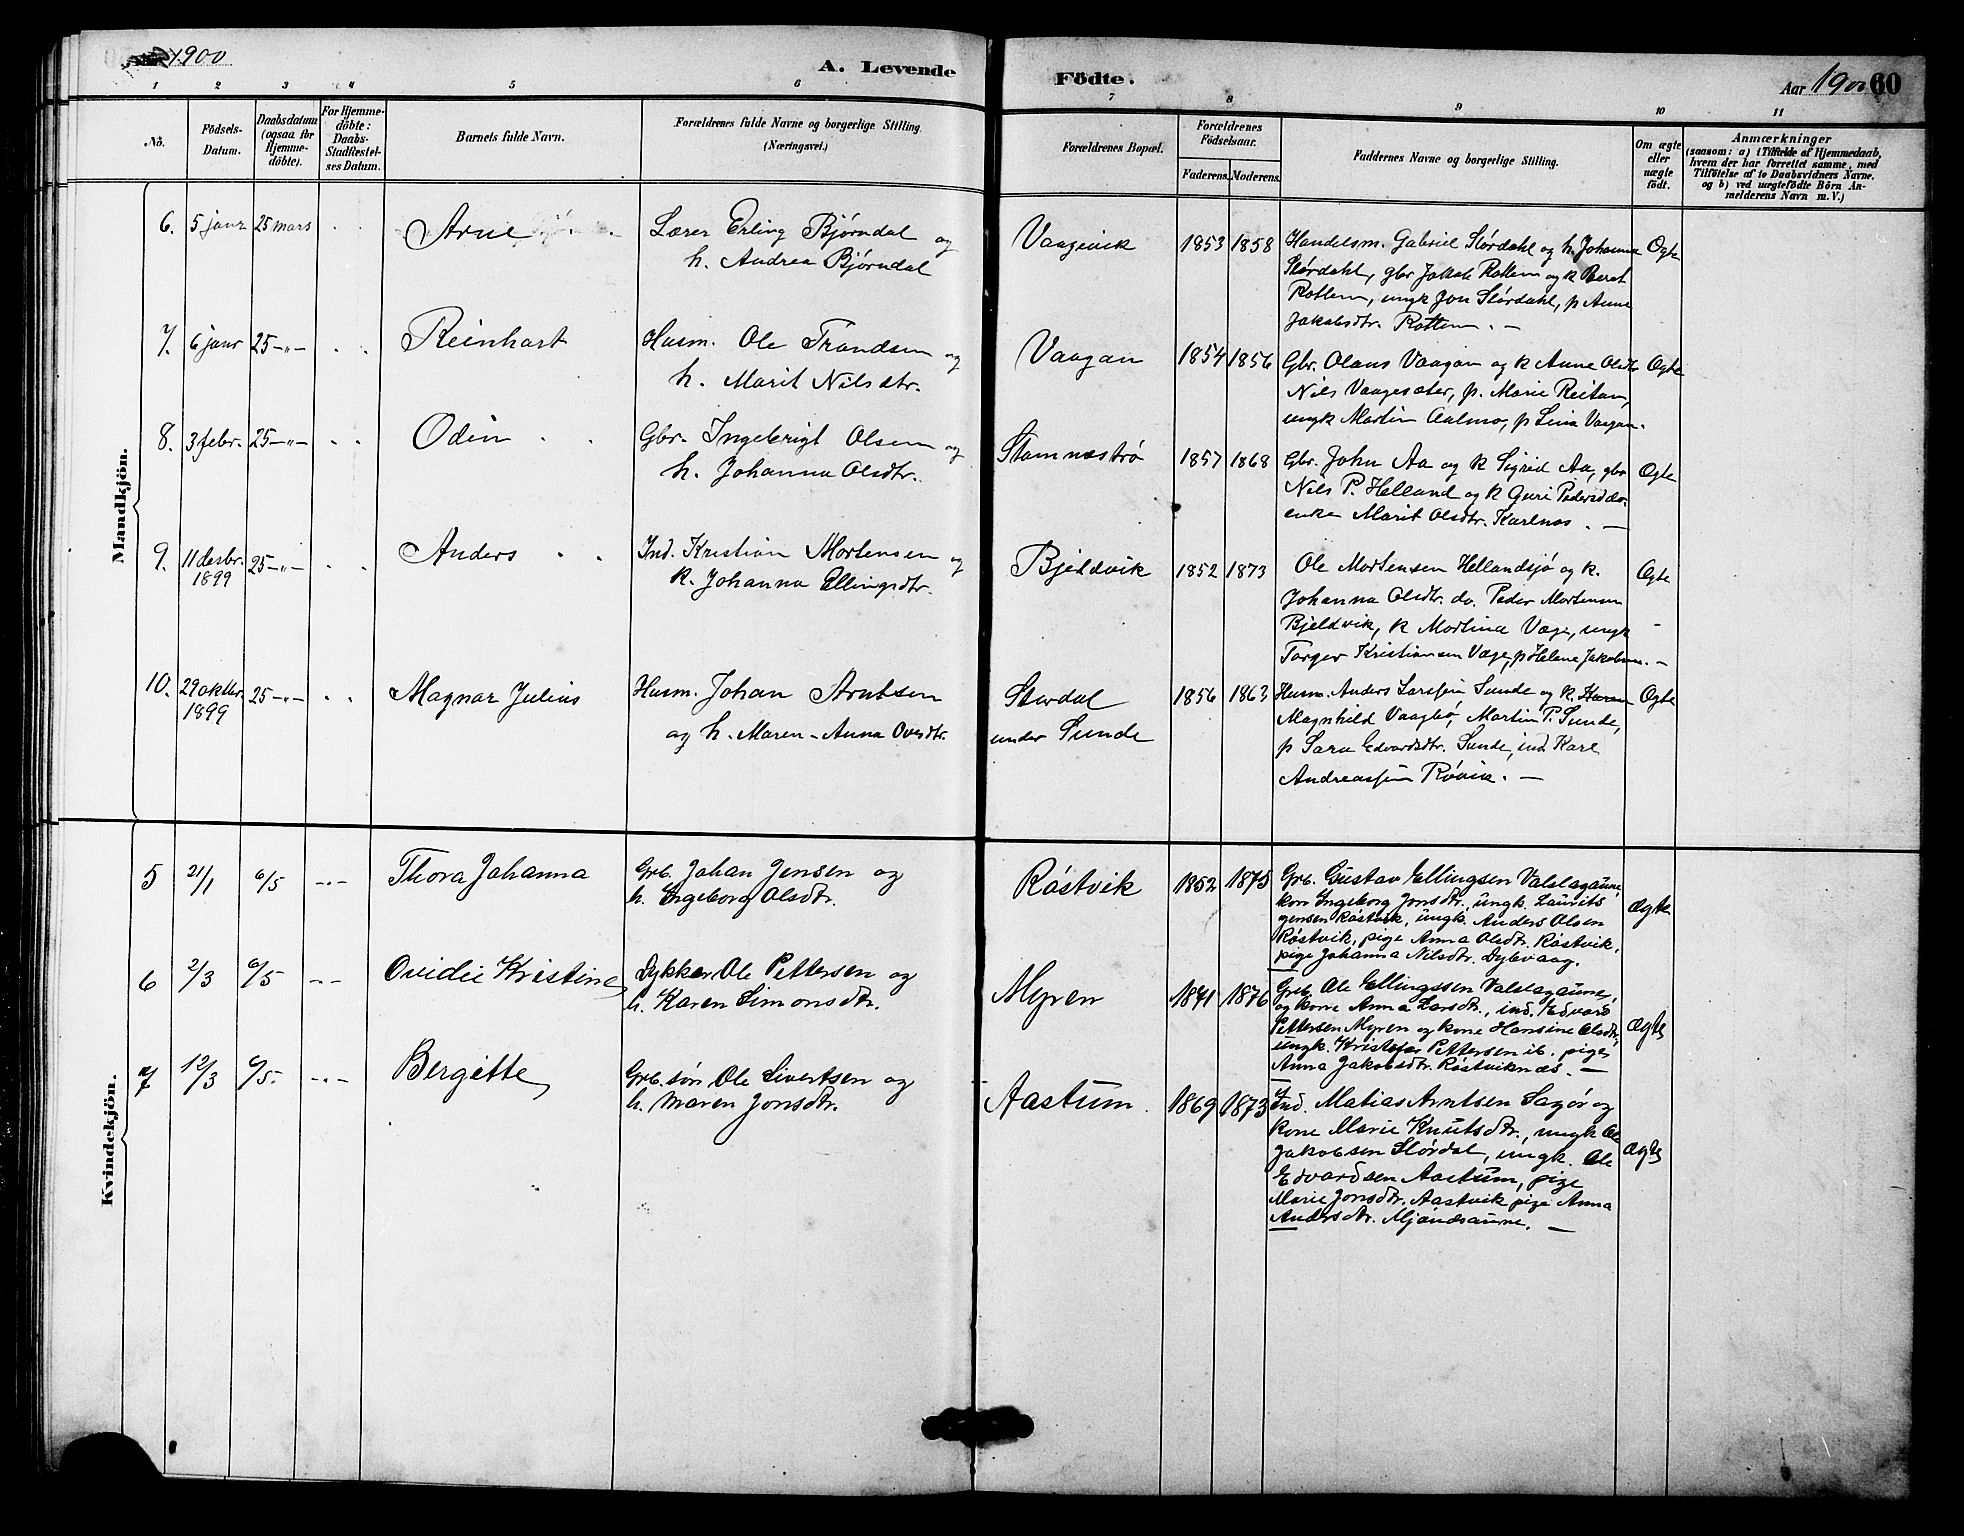 1900
A. Levende
Födte.
Aar 1900
60
1 2 3 4 5 6 7 8 9 10 11
No.
Födsels-
Datum.
Daabsdatum
(ogsaa for
Hjemme-
döbte).
For Hjemme-
döbte:
Daabs-
Stadfæstel-
ses Datum.
Barnets fulde Navn.
Forældrenes fulde Navne og borgerlige Stilling.
(Næringsvei.)
Forældrenes Bopæl.
Forældrenes
Födselsaar.
Faderens. Moderens.
Faddernes Navne og borgerlige Stilling.
Om ægte
eller
uægte
födt.
Anmærkninger
(saasom: a) i Tilfælde af Hjemmedaab,
hvem der har forrettet samme, med
Tilföielse af to Daabsvidners Navne.
og b) ved uægtefödte Börn An-
melderens Navn m. V.)
Mandkjön.
6. 5 janr 25 mars
Arne
Lærer Erling Bjørndal og
h. Andrea Bjørndal
Vaagevik
1853 1858
Handelsm. Gabriel Størdahl og h. Johanna
Størdahl, gbr Jakob Rottem og k Beret
Rottem, ungk Jon Størdahl, p Anne
Jakobsdtr. Rottem. —
Ogte
7. 6 janr 25 -„-
Reinhart
Husm. Ole Trondsen og
h. Marit Nilsdtr.
Vaagan
1854 1856
Gbr. Olaus Vaagan og k Anne Olsdtr
Nils Vaagesæter, p. Marie Reitan,
ungk Martin Aalmo, p Lina Vaagan.
Ogte
8. 3 febr. 25 -„-
Odin
Gbr. Ingebrigt Olsen og
h. Johanna Olsdtr.
Stamnestrø
1857 1868
Gbr. John Aa og k Sigrid Aa, gbr
Nils P. Helland og k Guri Pedersd do.
enke Marit Olsdtr. Karlnes. —
Ogte
9. 11 desbr. 1899 25 -„-
Anders
Ind. Kristian Mortensen og
k. Johanna Ellingsdtr.
Bjeldvik
1852 1873
Ole Mortensen Hellandsjø og k.
Johanna Olsdtr. do. Peder Mortensen
Bjeldvik, k Martina Væge, ungk
Torger Kristiansen Væge, p Helene Jakobsen. —
Ogte
10. 29 oktbr. 1899 25 -„-
Magnar Julius
Husm. Johan Arntsen
og h. Maren-Anna Ovesdtr.
Stordal
under Sunde
1856 1863
Husm. Anders Larssen Sunde og k.
Magnhild Vaagbø, Martin P. Sunde,
p Sara Edvardsdtr. Sunde, ind Karl
Andreassen Røvik. —
Ogte
Kvindekjön.
5 21/1 6/5 -„-
Thora Johanna
Grb. Johan Jensen og
h. Ingeborg Olsdtr.
Røstvik
1852 1875
Grb. Gustav Ellingsen Valslagaune,
kon Ingeborg Jonsdtr., ungk. Laurits
Jensen Røstvik, ungk. Anders Olsen
Røstvik, pige Anna Olsdtr. Røstvik,
pige Johanna Nilsdtr. Dybvaag.
ægte
6 2/3 6/5 -„-
Ovidie Kristine
Dykker Ole Pettersen og
h. Karen Simonsdtr.
Myren
1871 1876
Grb. Ole Ellingssen Valslagaune,
og kone Anna Larsdtr., ind. Edvard
Pettersen Myren og kone Hansine Olsdtr,
ungk. Kristofer Pettersen ib. pige
Anna Jakobsdtr. Røstviknæs. —
ægte
7 12/3 6/5 -„-
Bergitte
Grb. søn Ole Sivertsen og
h. Maren Jonsdtr.
Aastum
1869 1873
Ind. Matias Arntsen Sagør og
kone Marie Knutsdtr., ungk Ole
Jakobsen Størdal, ungk. Ole
Edvardsen Aastum, pige
Marie Jonsdtr. Aastvik pige Anna
Andersdtr. Mjøndsaune. —
ægte